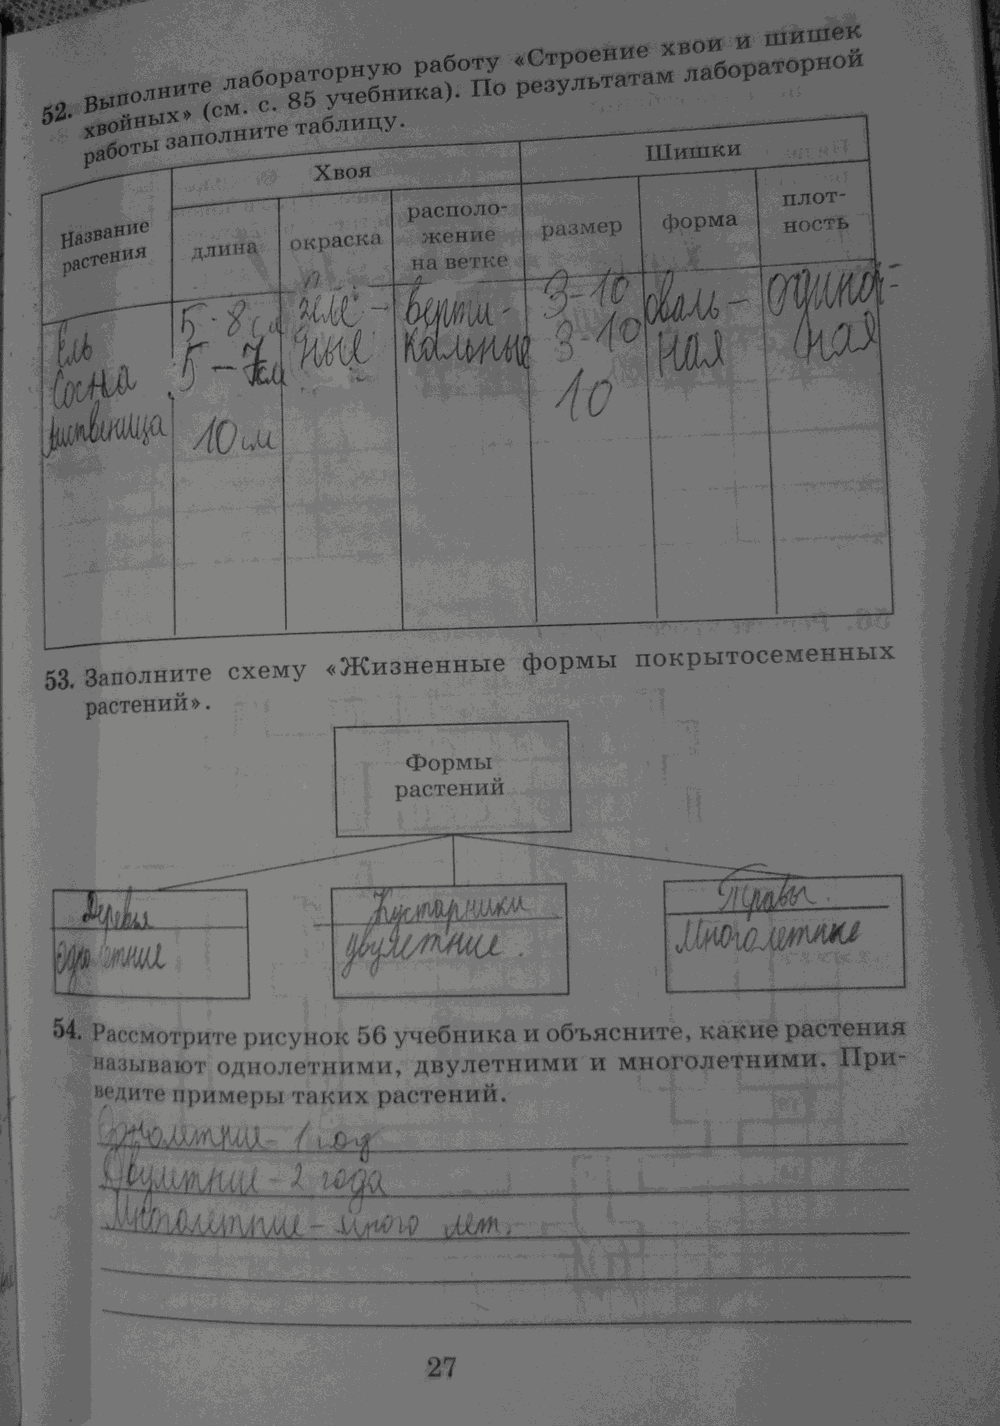 52. Выполните лабораторную работу «Строение хвои и шишек
хвойных» (см. с. 85 учебника). По результатам лабораторной
работы заполните таблицу.
Название
растения
Хвоя
Шишки
длина
окраска
располо-
жение
на ветке
размер
форма
плот-
ность
Ель
5-8 см
зеле-
верти-
3-10
оваль-
одиноч-
Сосна
5-7см
ные
кальные
3-10
ная
ная
лиственица
10 см
10
53. Заполните схему «Жизненные формы покрытосеменных
растений».
Формы
растений
Деревья
однолетние
Кустарники
двулетние.
Травы.
Многолетние
54. Рассмотрите рисунок 56 учебника и объясните, какие растения
называют однолетними, двулетними и многолетними. При-
ведите примеры таких растений.
Однолетние - 1 год
Двулетние - 2 года
Многолетние - много лет.
27